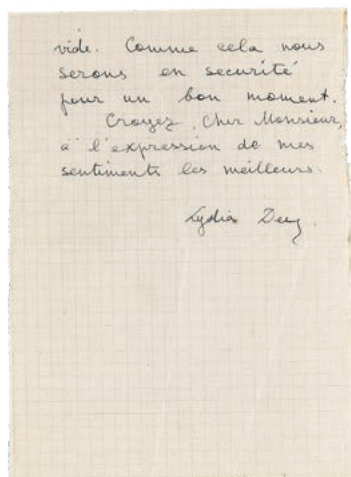 vide. Comme cela nous
serons en securité
pour un bon moment.
Croyez, Cher Monsieur,
à l'expression de mes
sentiments les meilleurs.
Lydia